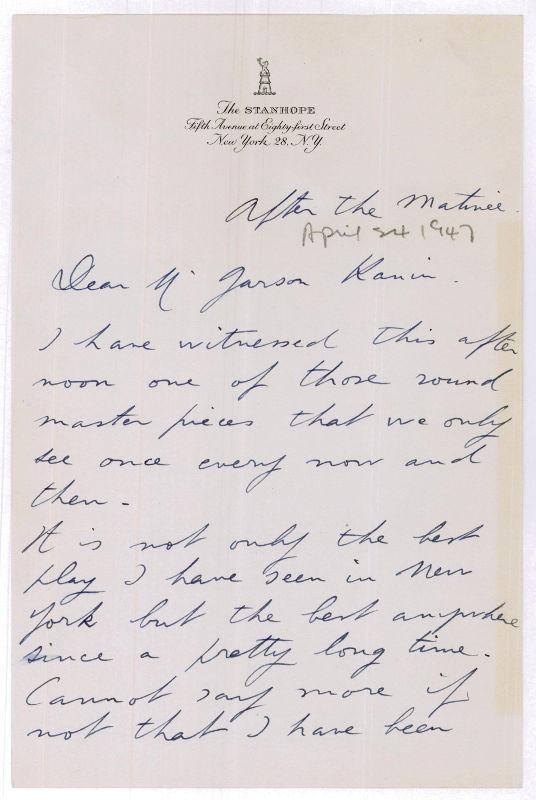 The STANHOPE
Fifth Avenue at Eighty-first Street
New York 28, N.Y.
After the Matinee.
April 24 1947
Dear Mr Garson Kanin.
I have witnessed this after
noon one of those round
master pieces that we only
see once every now and
then -
It is not only the best
play I have seen in New
York but the best anywhere
since a pretty long time.
Cannot say more if
not that I have been